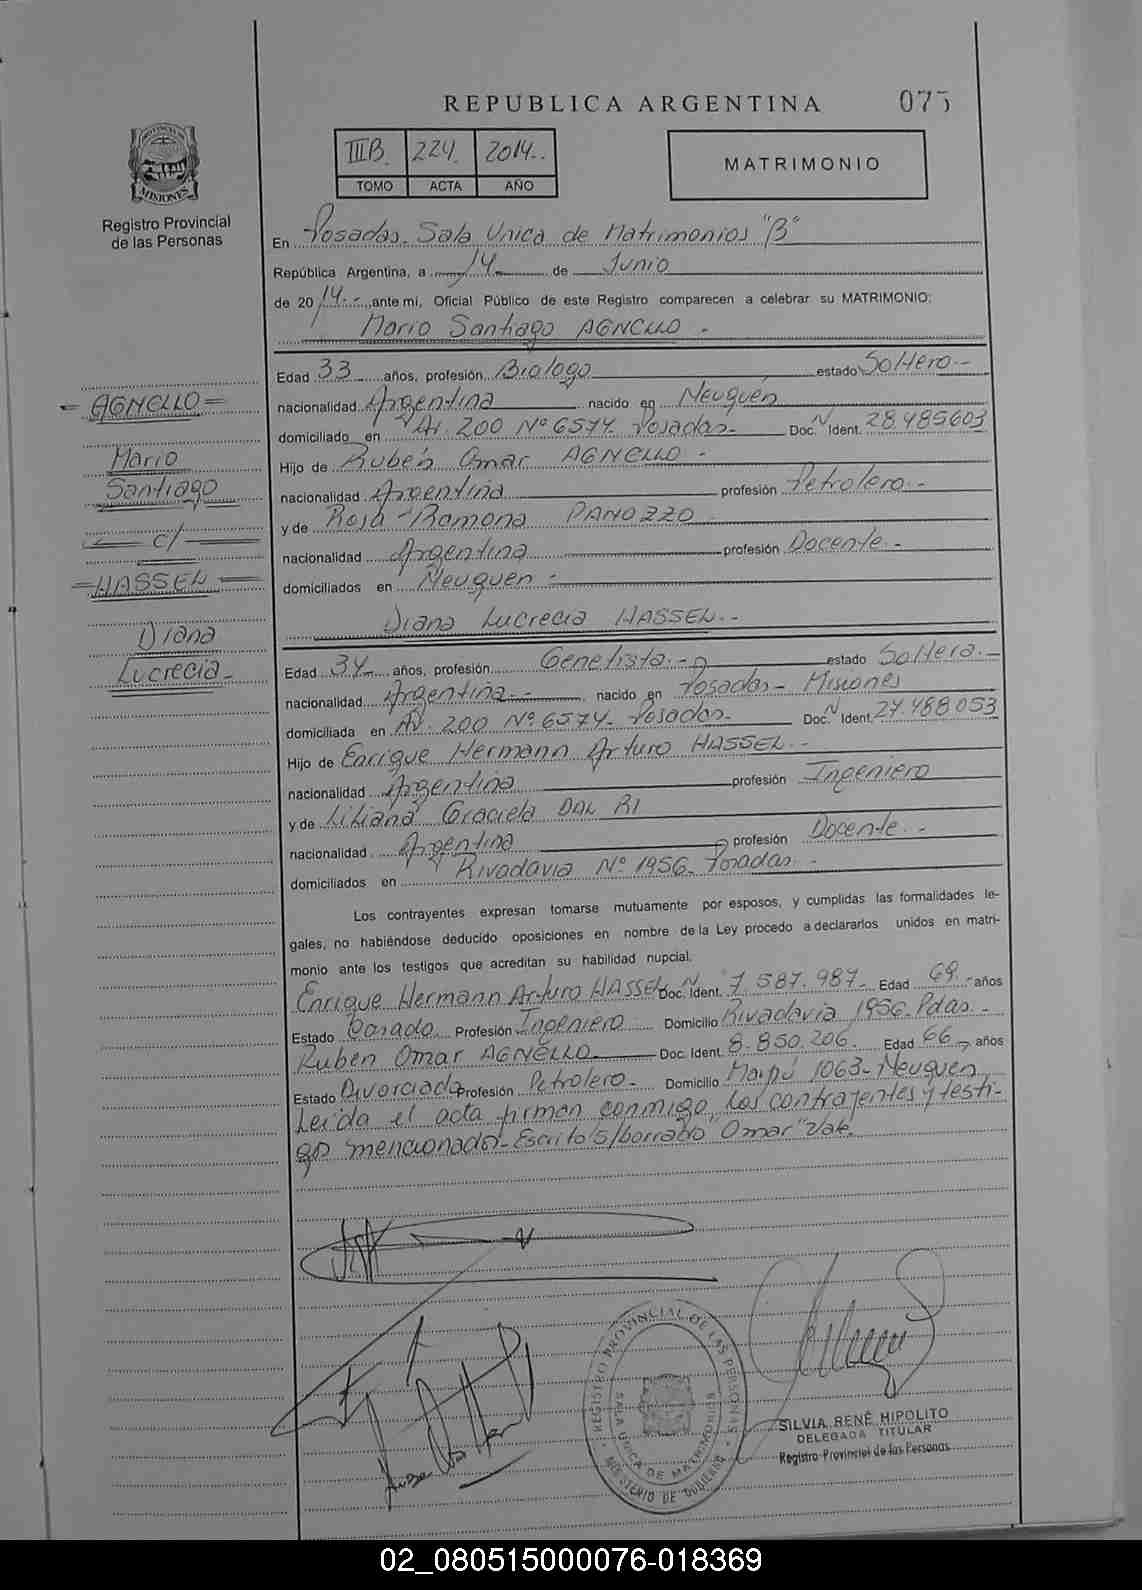 REPUBLICA ARGENTINA
075
PROVINCIA DE MISIONES
Registro Provincial
de las Personas
IIIB. 224. 2014..
TOMO ACTA AÑO
MATRIMONIO
En Posadas. Sala Unica de Matrimonios "B"
República Argentina, a 14 de Junio
de 2014.- ante mi, Oficial Público de este Registro comparecen a celebrar su MATRIMONIO:
Mario Santiago AGNELLO.-
= AGNELLO =
Mario
Santiago
c/
= HASSEL =
Diana
Lucrecia-
Edad 33 años, profesión Biologo estado Soltero.-
nacionalidad Argentina nacido en Neuquén
domiciliado en Av. 200 Nº 6574. Posadas- Doc. N Ident. 28.485603
Hijo de Rubén Omar AGNELLO.-
nacionalidad Argentina profesión Petrolero.-
y de Rosa Ramona PANOZZO
nacionalidad Argentina profesión Docente.-
domiciliados en Neuquen.-
Diana Lucrecia HASSEL.-
Edad 34 años, profesión Genetista.- estado Soltera.-
nacionalidad Argentina.- nacido en Posadas- Misiones
domiciliada en Av. 200 Nº 6574- Posadas- Doc. N Ident. 27.488.053
Hijo de Enrique Hermann Arturo HASSEL.-
nacionalidad Argentina profesión Ingeniero
y de Liliana Graciela DAL RI
nacionalidad Argentina profesión Docente.-
domiciliados en Rivadavia Nº 1956- Posadas.-
Los contrayentes expresan tomarse mutuamente por esposos, y cumplidas las formalidades le-
gales, no habiéndose deducido oposiciones en nombre de la Ley procedo a declararlos unidos en matri-
monio ante los testigos que acreditan su habilidad nupcial.
Enrique Hermann Arturo HASSEL Doc. N Ident. 7.587.987- Edad 69.- años
Estado Casado Profesión Ingeniero Domicilio Rivadavia 1956- Pdas.-
Ruben Omar AGNELLO Doc. Ident. 8.850.206. Edad 66 años
Estado Divorciado Profesión Petrolero- Domicilio Maipú 1063- Neuquen
Leida el acta firman conmigo, los contrayentes y testi-
gos mencionados- Escrito s/borrado "Omar" Vale.
REGISTRO PROVINCIAL DE LAS PERSONAS
SALA UNICA DE MATRIMONIOS
MINISTERIO DE GOBIERNO
SILVIA RENÉ HIPOLITO
DELEGADA TITULAR
Registro Provincial de las Personas
02_080515000076-018369